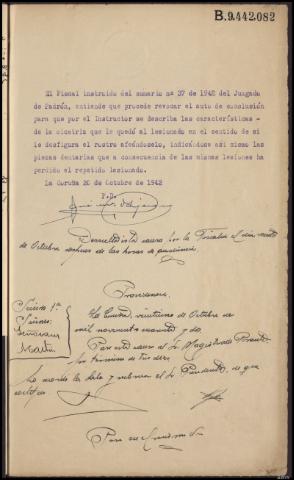 B.9.442.082
El Fiscal instruido del sumario nº 37 de 1942 del Juzgado
de Padrón, entiende que procede revocar el auto de conclusión
para que por el Instructor se describa las características -
de la cicatriz que le quedó al lesionado en el sentido de si
le desfigura el rostro afeándoselo, indicándose así mismo las
piezas dentarias que a consecuencia de las mismas lesiones ha
perdido el repetido lesionado.
La Coruña 20 de Octubre de 1942
Devuelta esta causa por la Fiscalía el día veinte
de Octubre después de las horas de audiencia.
Providencia
Señores
La Coruña, veintiuno de Octubre de
mil novecientos cuarenta y dos
Martín
Pase esta causa al Sr. Magistrado Ponente
por término de tres días
Lo mandó la Sala y rubrica el Sr. Presidente, de que
certifico